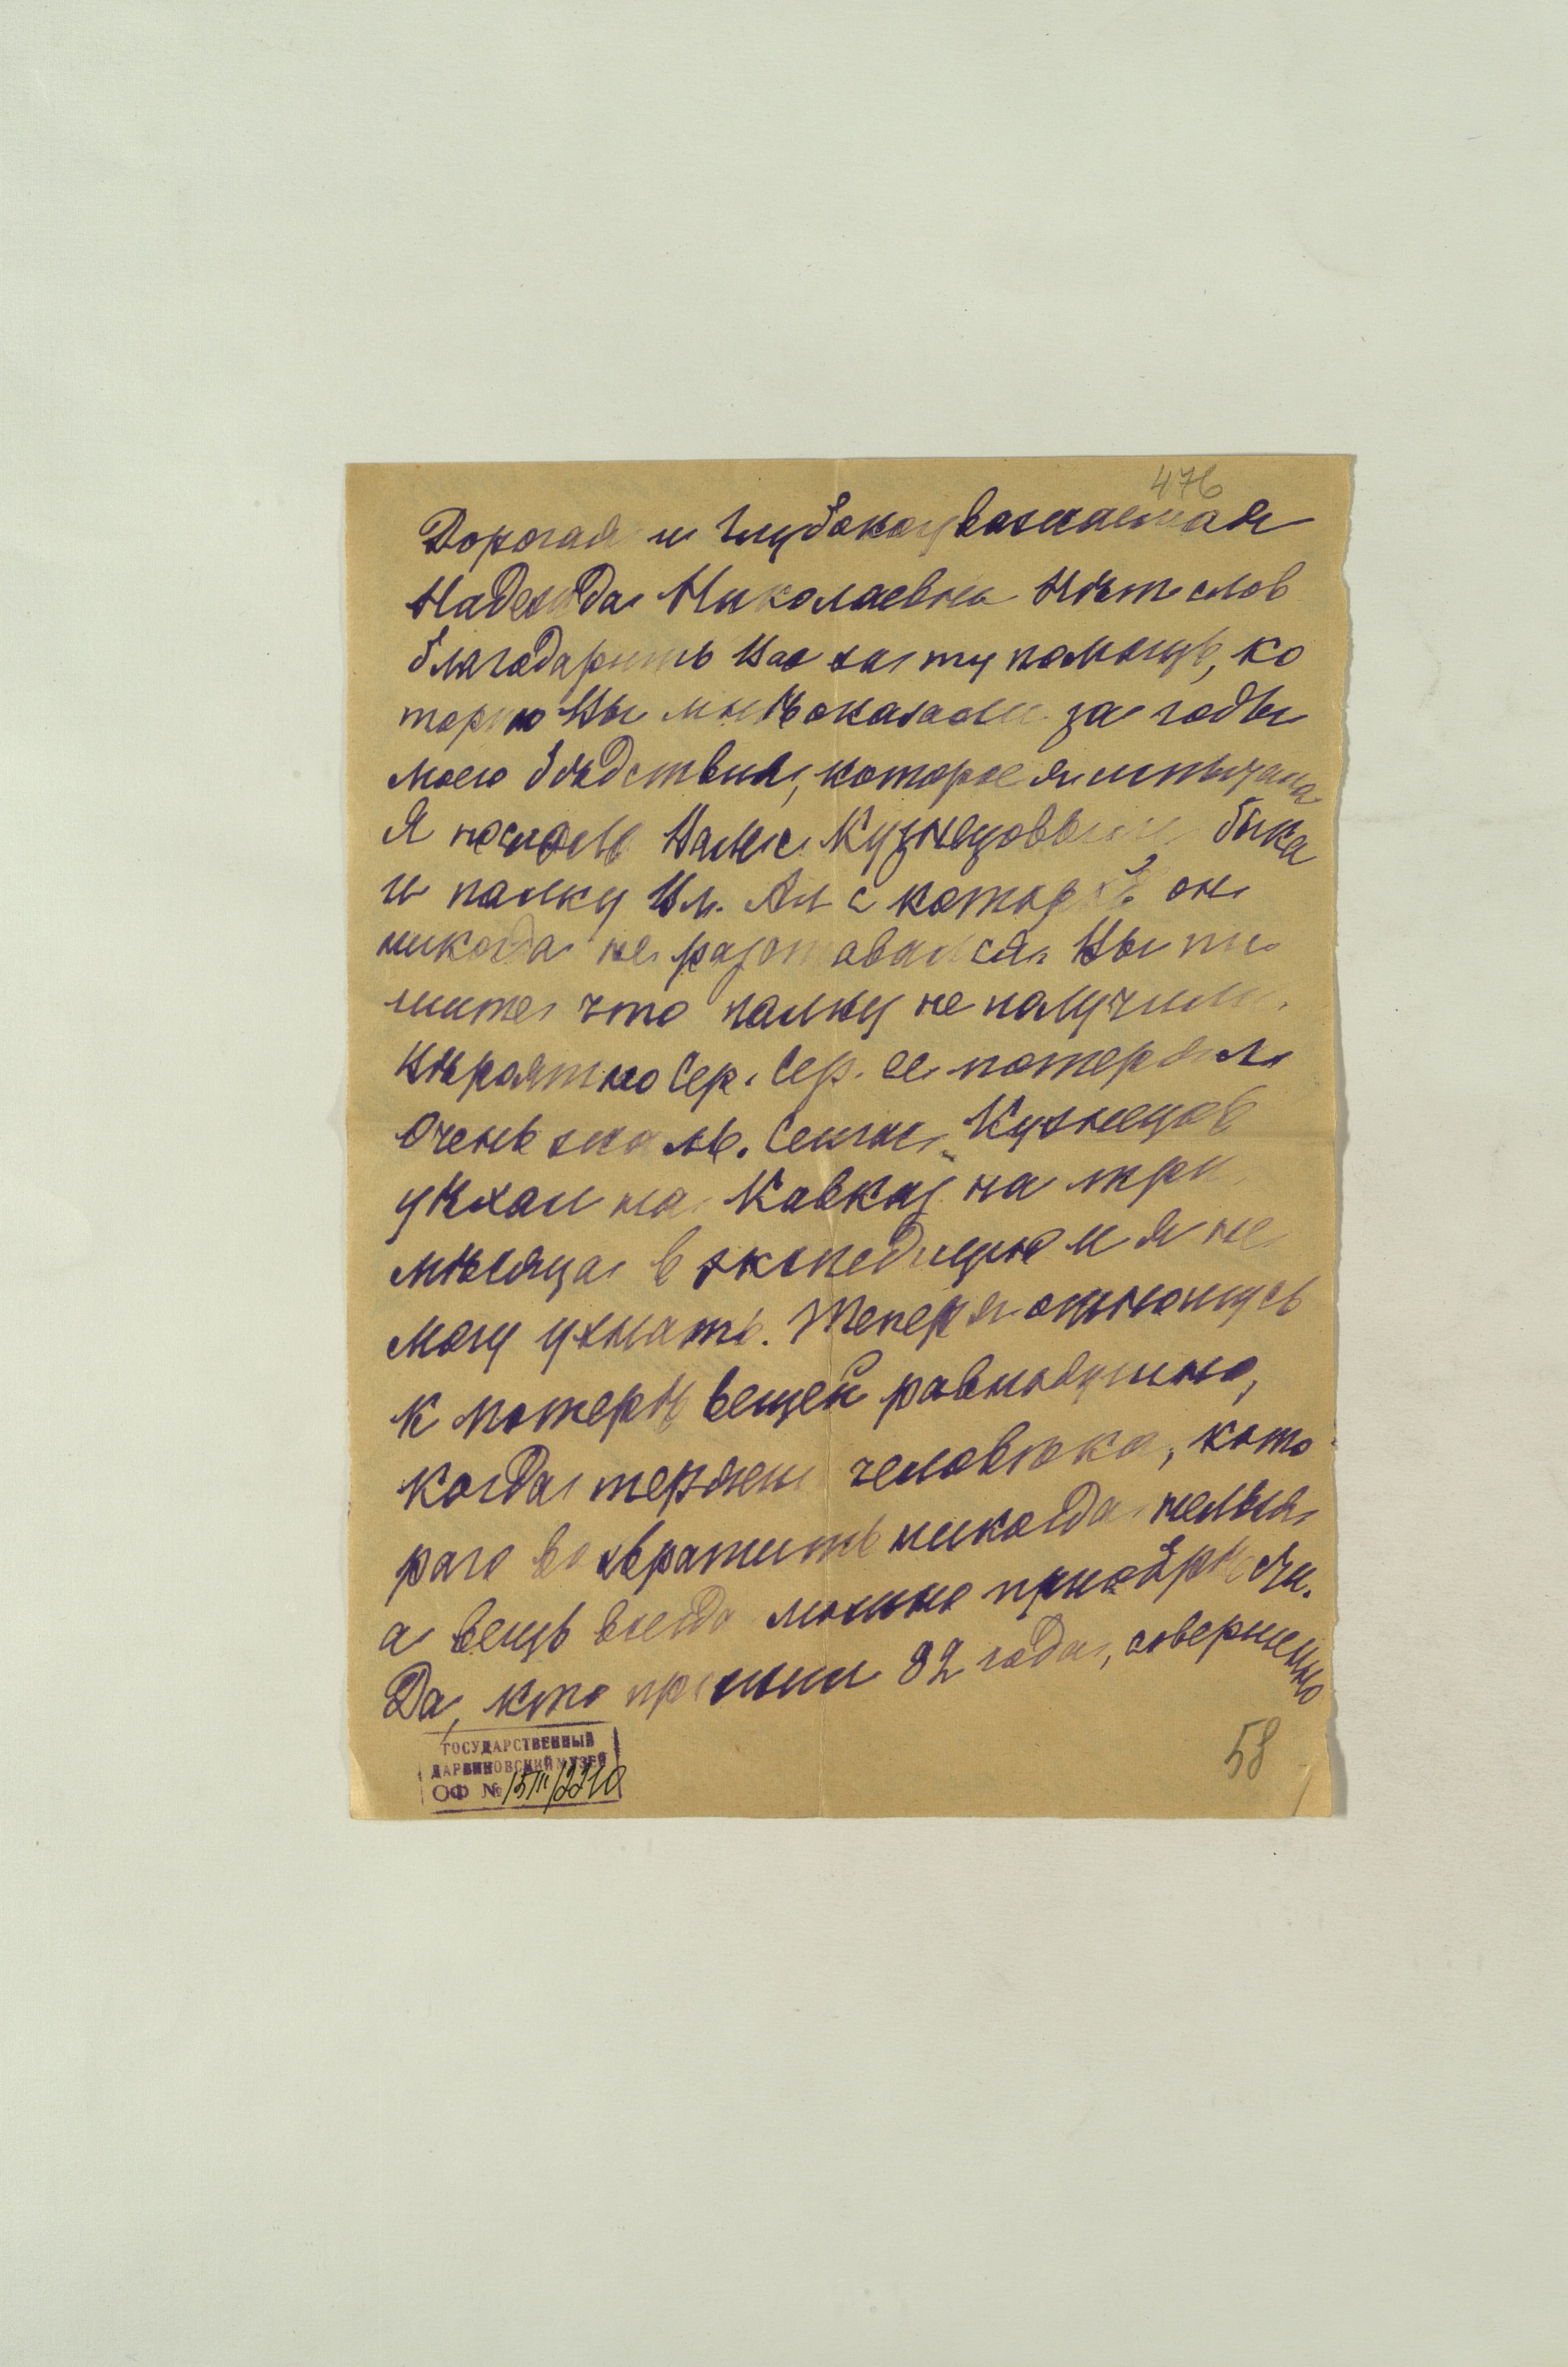 476
Дорогая и глубокоуважаемая
Надежда Николаевна Нѣт слов
благодарить Вас за ту помощь, ко
торую Вы мнѣ оказали за годы
моего бѣдствия, которое я испытала
Я послала Вам с Кузнецовым быка
и палку Вл. Ал. с которой он
никогда не разставался. Вы пи
шите что палку не получили.
Вѣроятно Сер. Сер. ее потерял
Очень жаль. Сейчас Кузнецов
уѣхал на Кавказ на три
мѣсяца в экспедицию и я не
могу узнать. Теперь я отношусь
к потерѣ вещей равнодушно,
когда теряем человѣка, кото
раго возвратить никогда нельзя,
а вещь всегда можно приобрѣсти.
Да, кто прожил 82 года, совершенно
ГОСУДАРСТВЕННЫЙ
ДАРВИНОВСКИЙ МУЗЕЙ
ОФ № 15III/2210
58